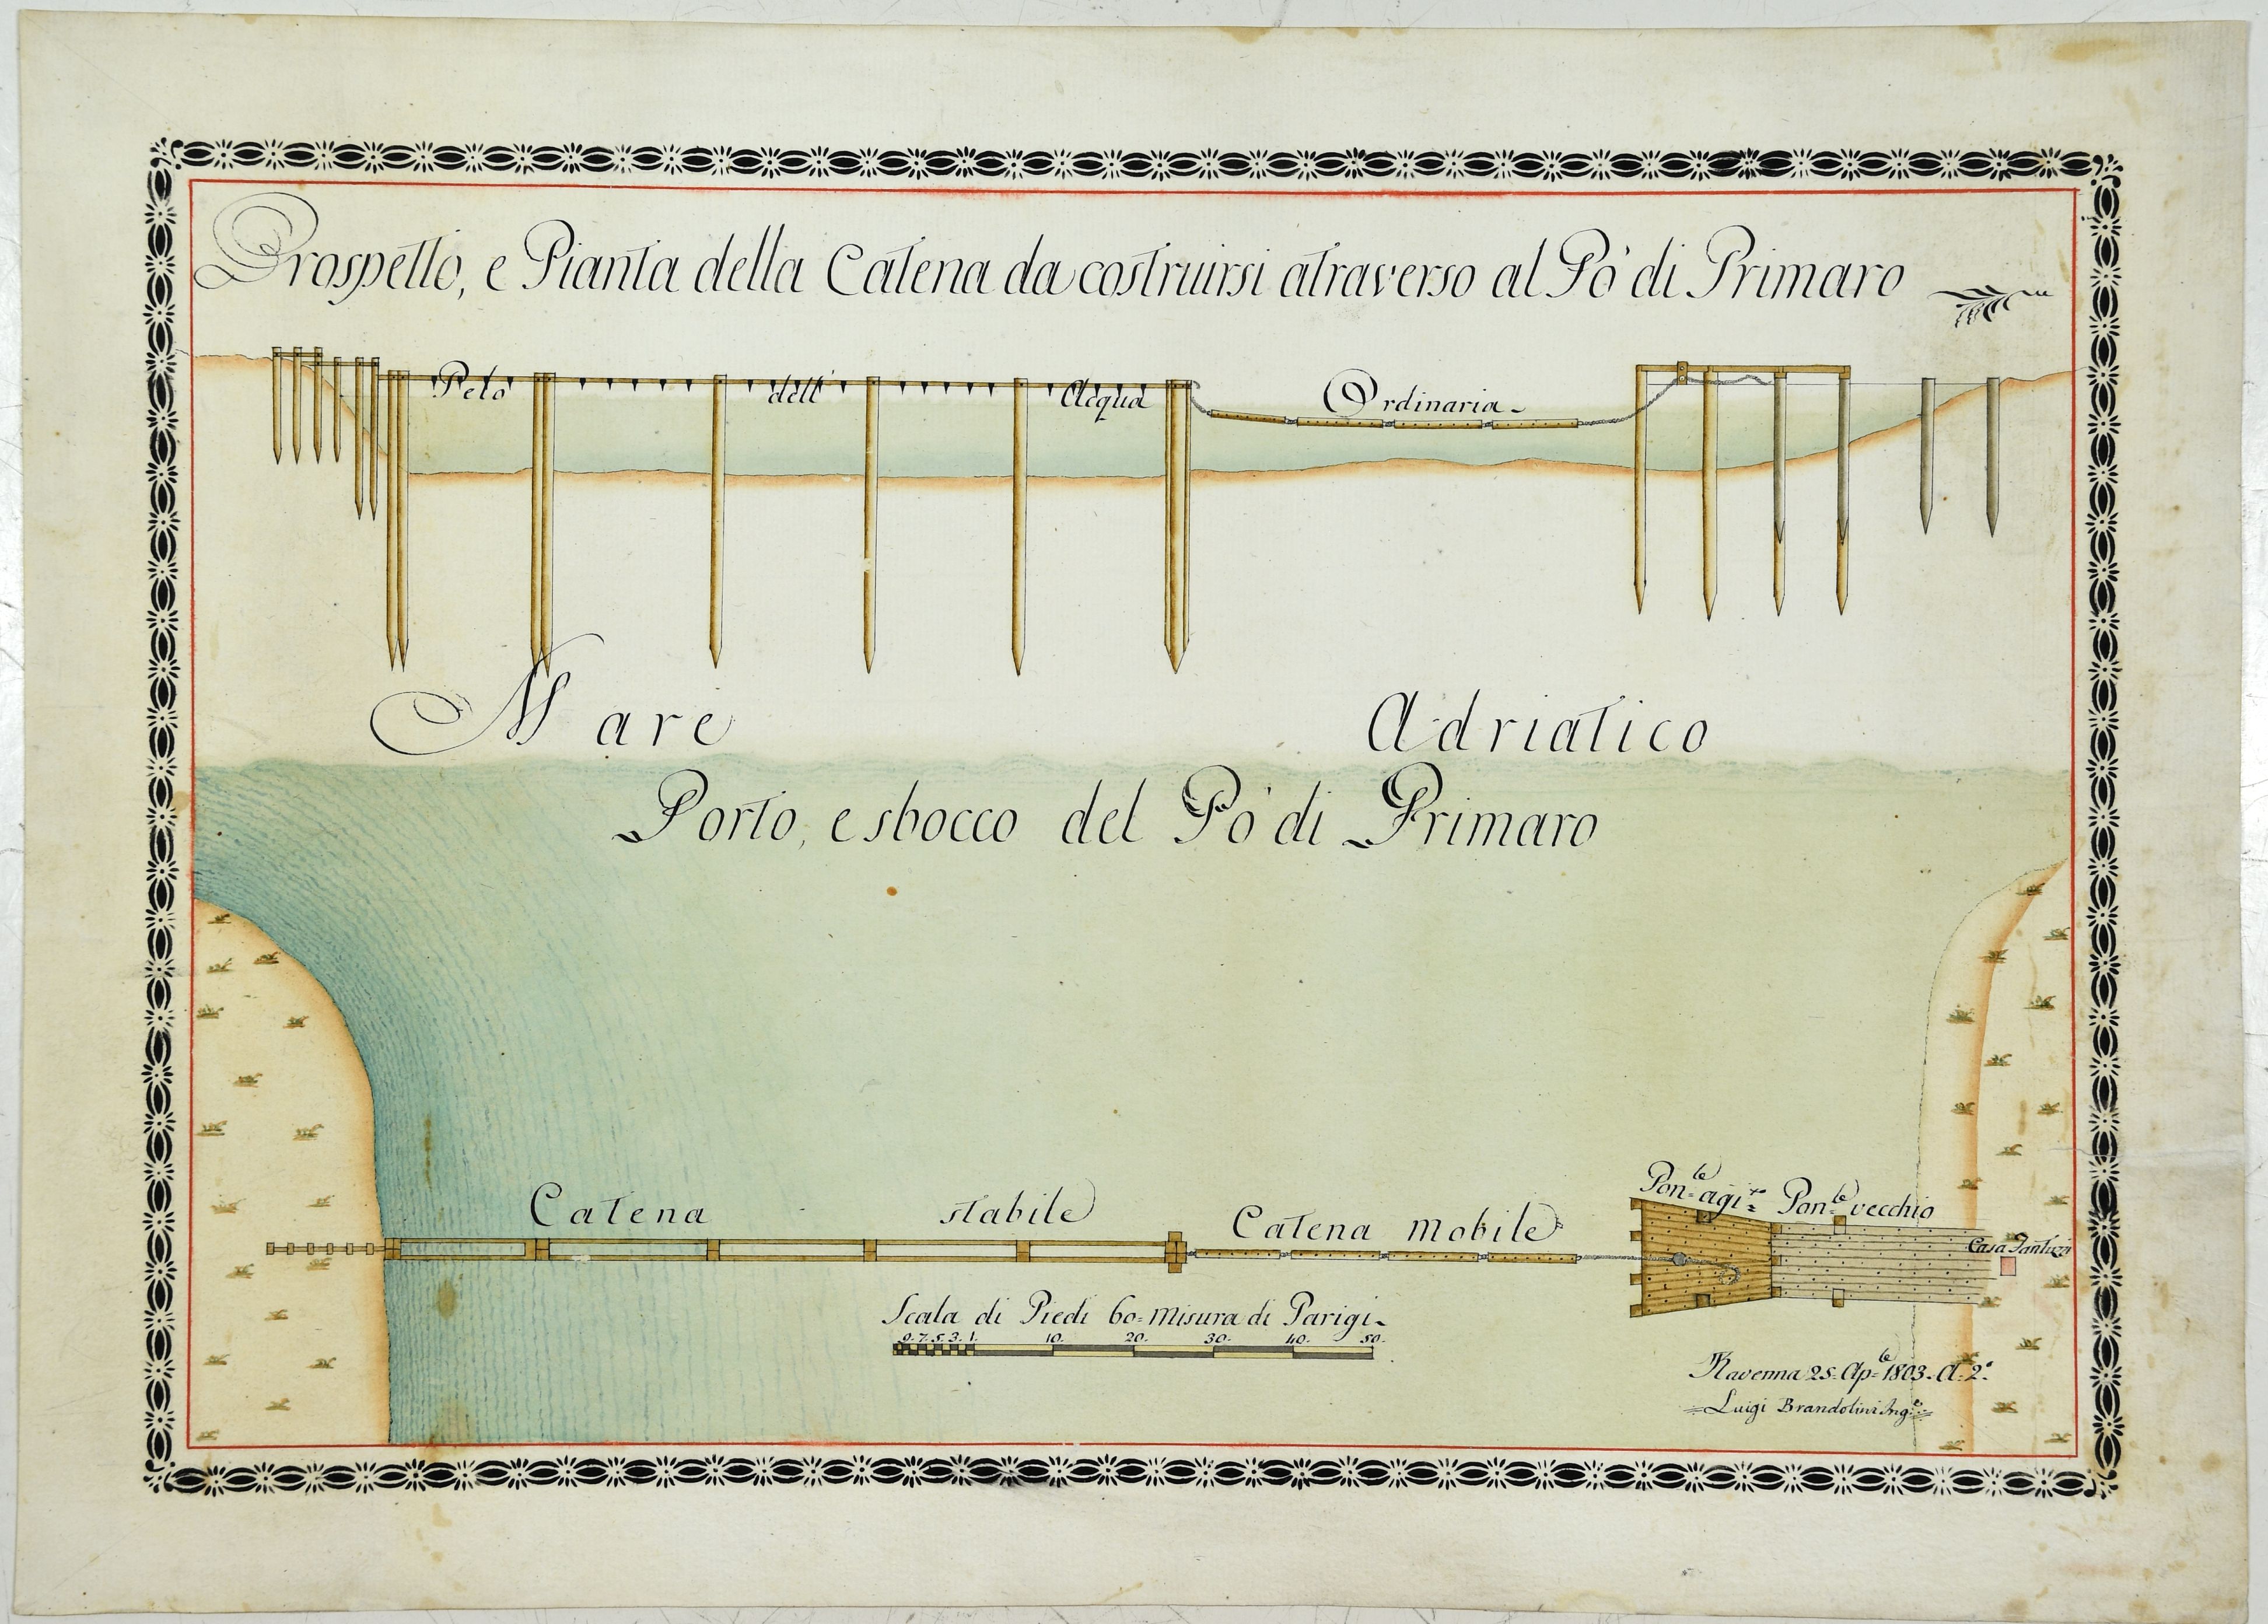 Prospetto, e Pianta della Catena da costruirsi atraverso al Pò di Primaro
Pelo dell' Acqua Ordinaria
Mare Adriatico
Porto, e sbocco del Pò di Primaro
Catena stabile
Catena Mobile
Pon.le agi.
Pon.le vecchio
Casa Fantuzzi
Scala di Piedi 60 = Misura di Parigi
9. 7. 5. 3. 1. 10. 20. 30. 40. 50.
Ravenna 25. Ap.le 1803. A. 2.°
Luigi Brandolini Ing.e